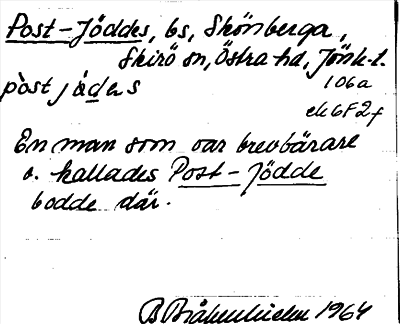 Post-Jöddes, bs, Skönberga,
Skirö sn, Östra hd, Jönk.l.
pòst jødes 106a
ek 6F2f
En man som var brevbärare
o. kallades Post-Jödde
bodde där.
B Bråkenhielm 1964